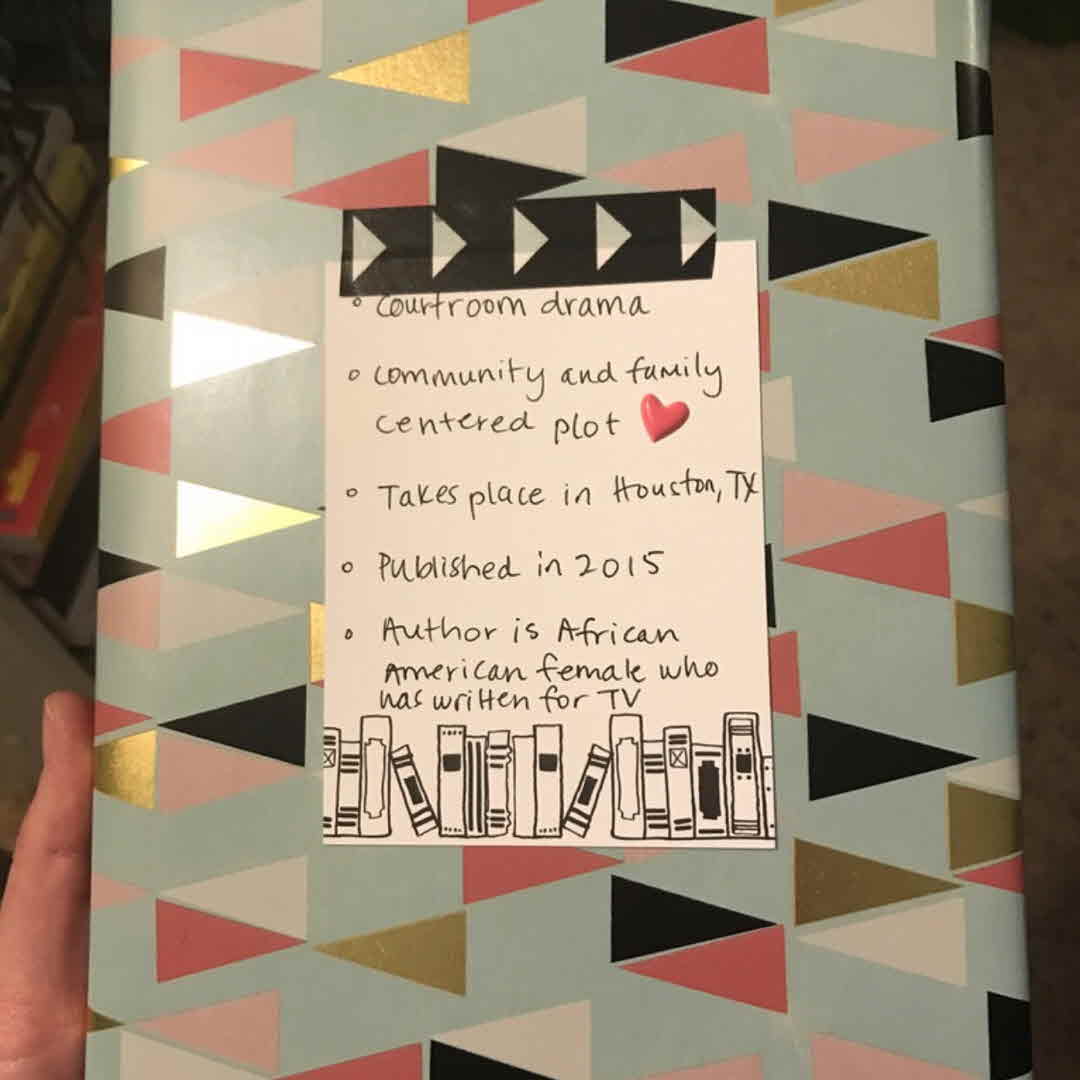 ° Courtroom drama
° Community and family
centered plot
° Takes place in Houston, TX
° Published in 2015
° Author is African
American female who
has written for TV